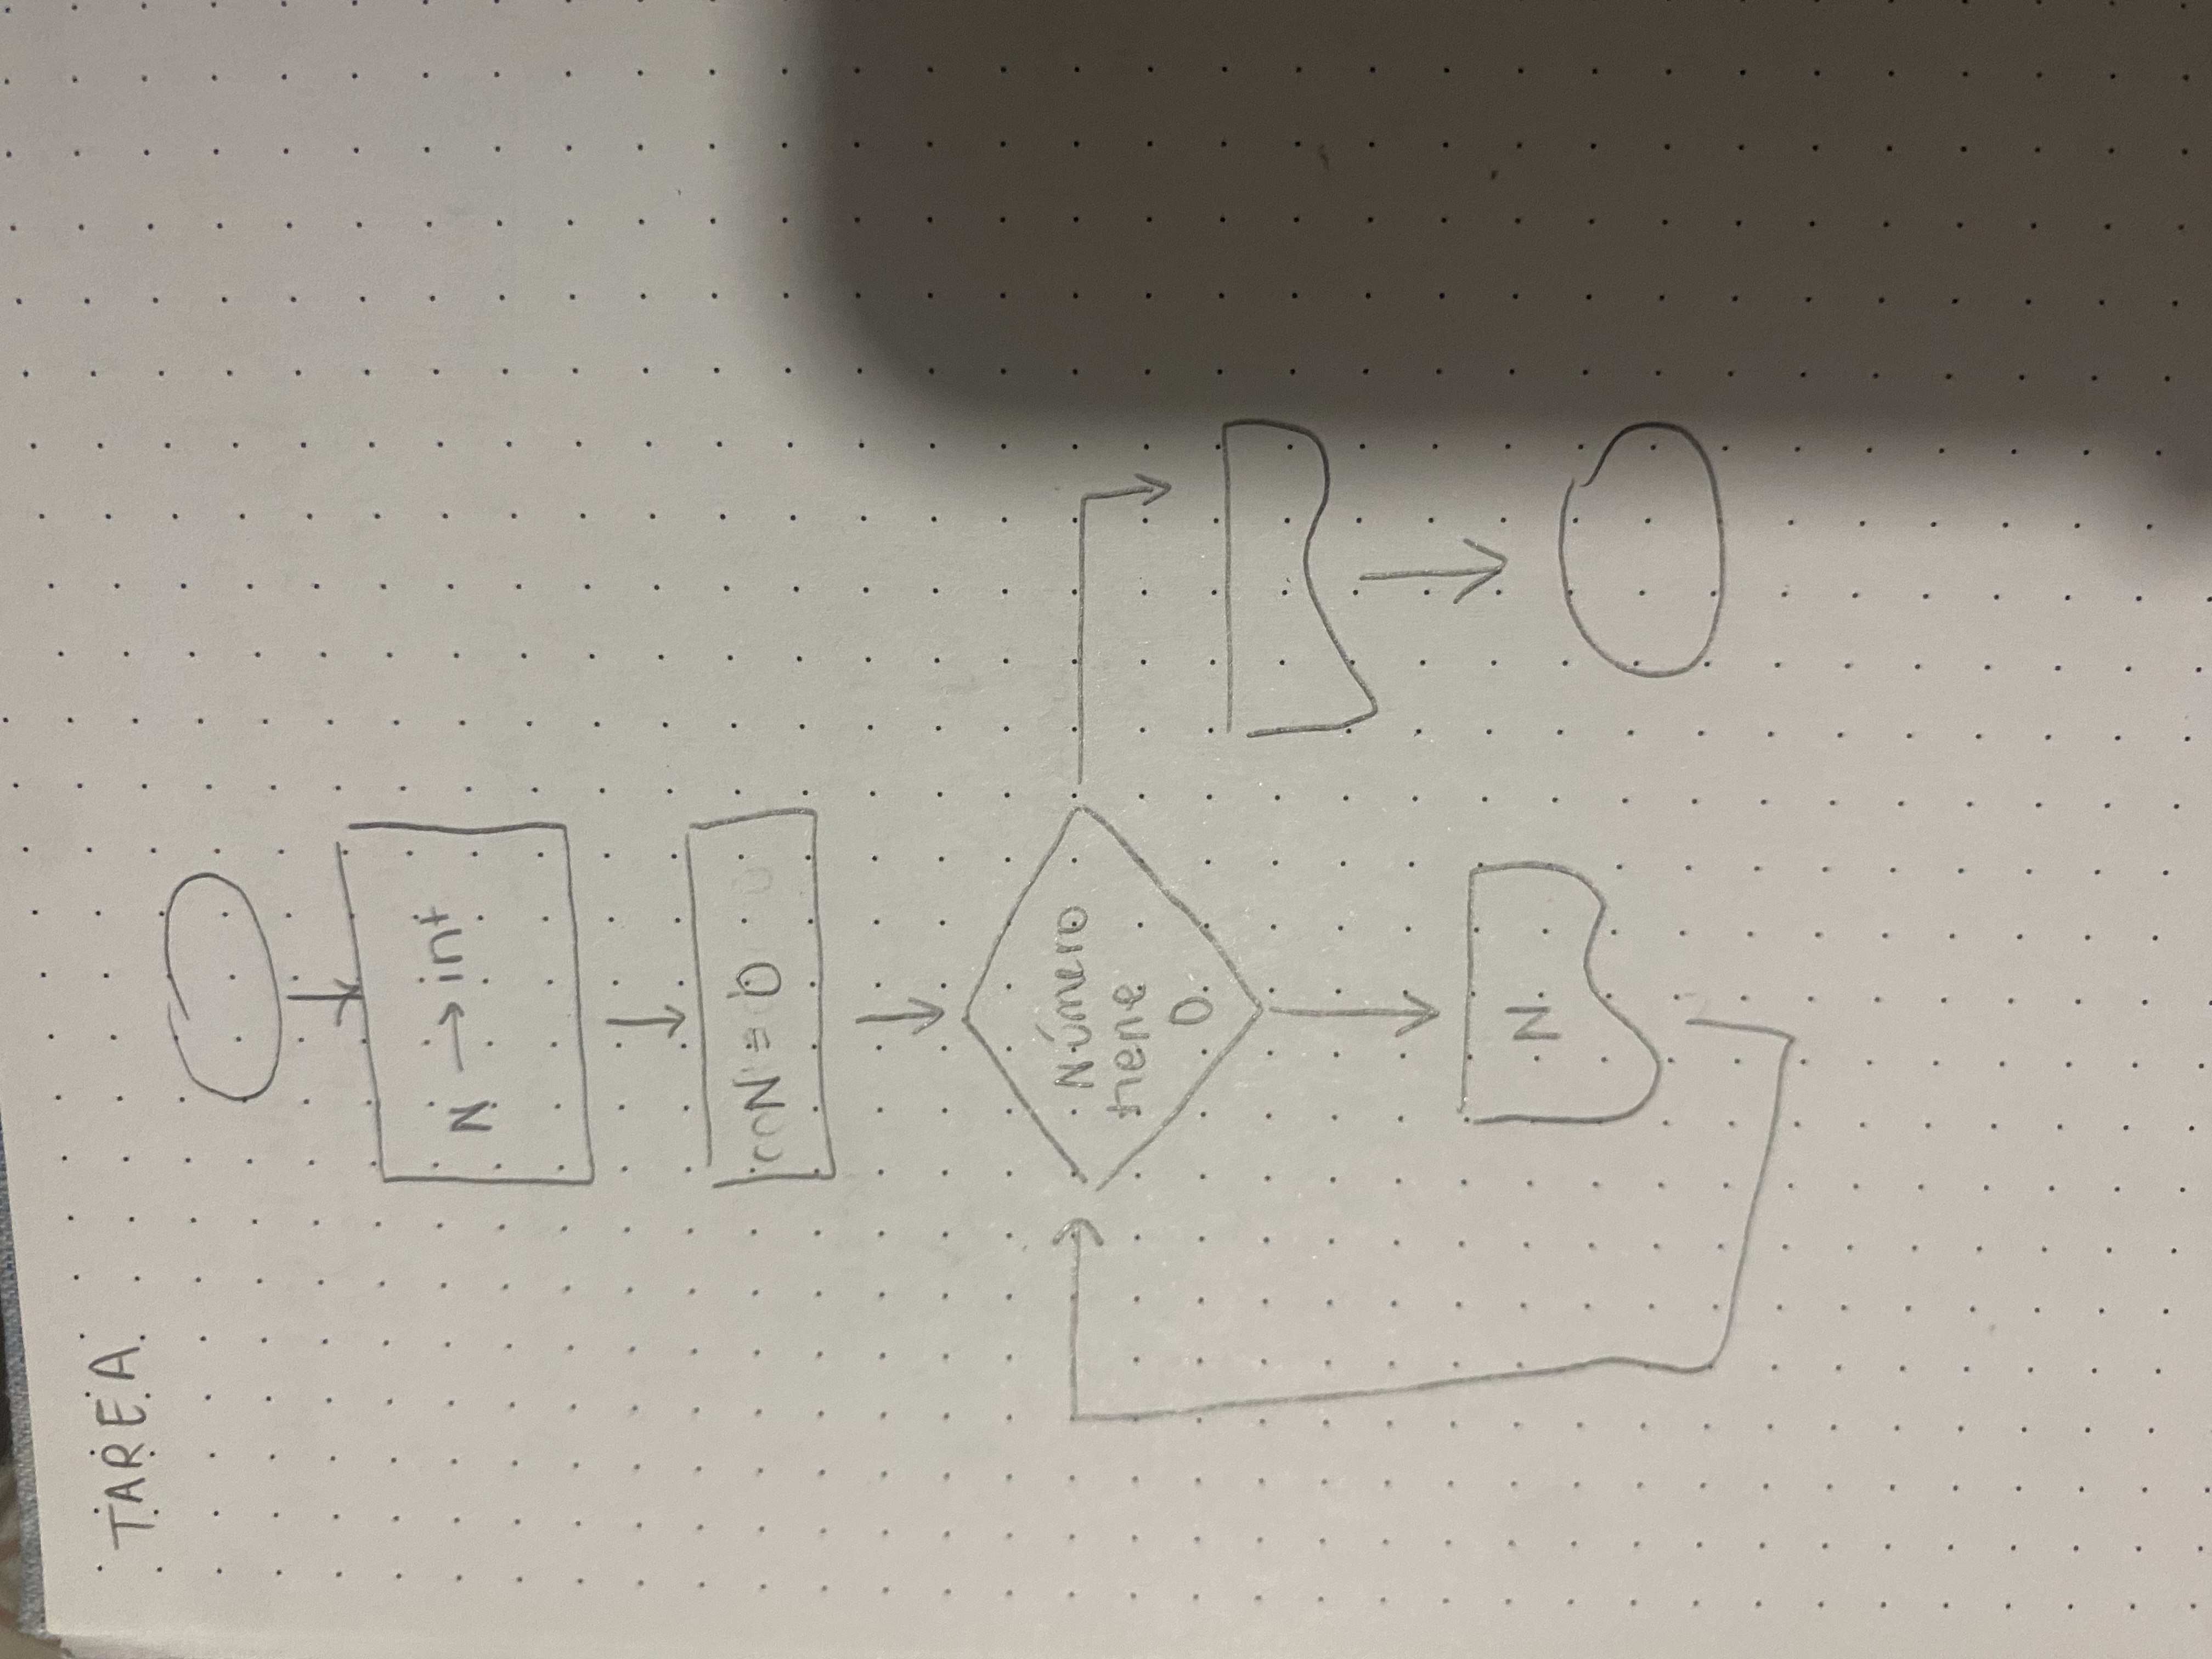 TAREA
N → int
N = 0
Número
tiene
0
N